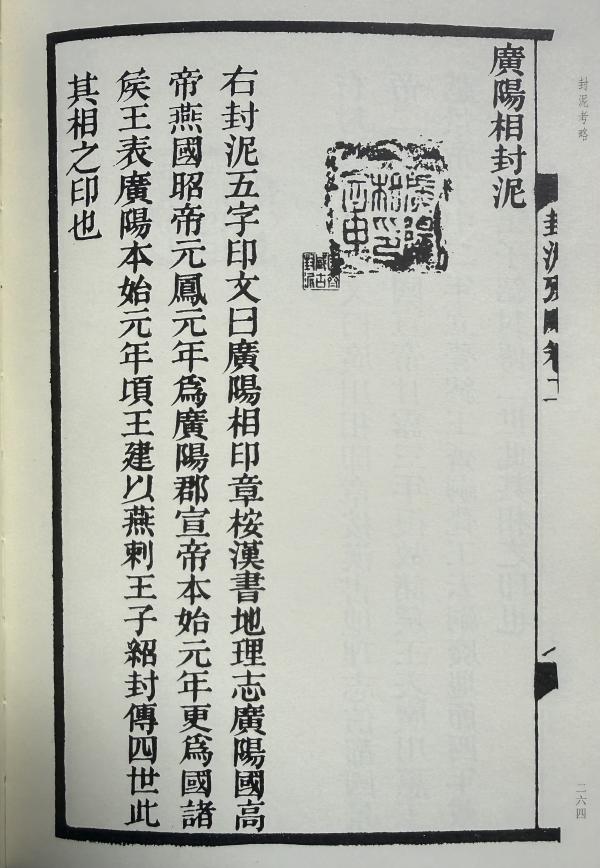 封泥考略
封泥攷略卷
廣陽相封泥
廣陽相印章
右封泥五字印文曰廣陽相印章桉漢書地理志廣陽國高
帝燕國昭帝元鳳元年爲廣陽郡宣帝本始元年更爲國諸
矦王表廣陽本始元年頃王建以燕剌王子紹封傳四世此
其相之印也
二六四